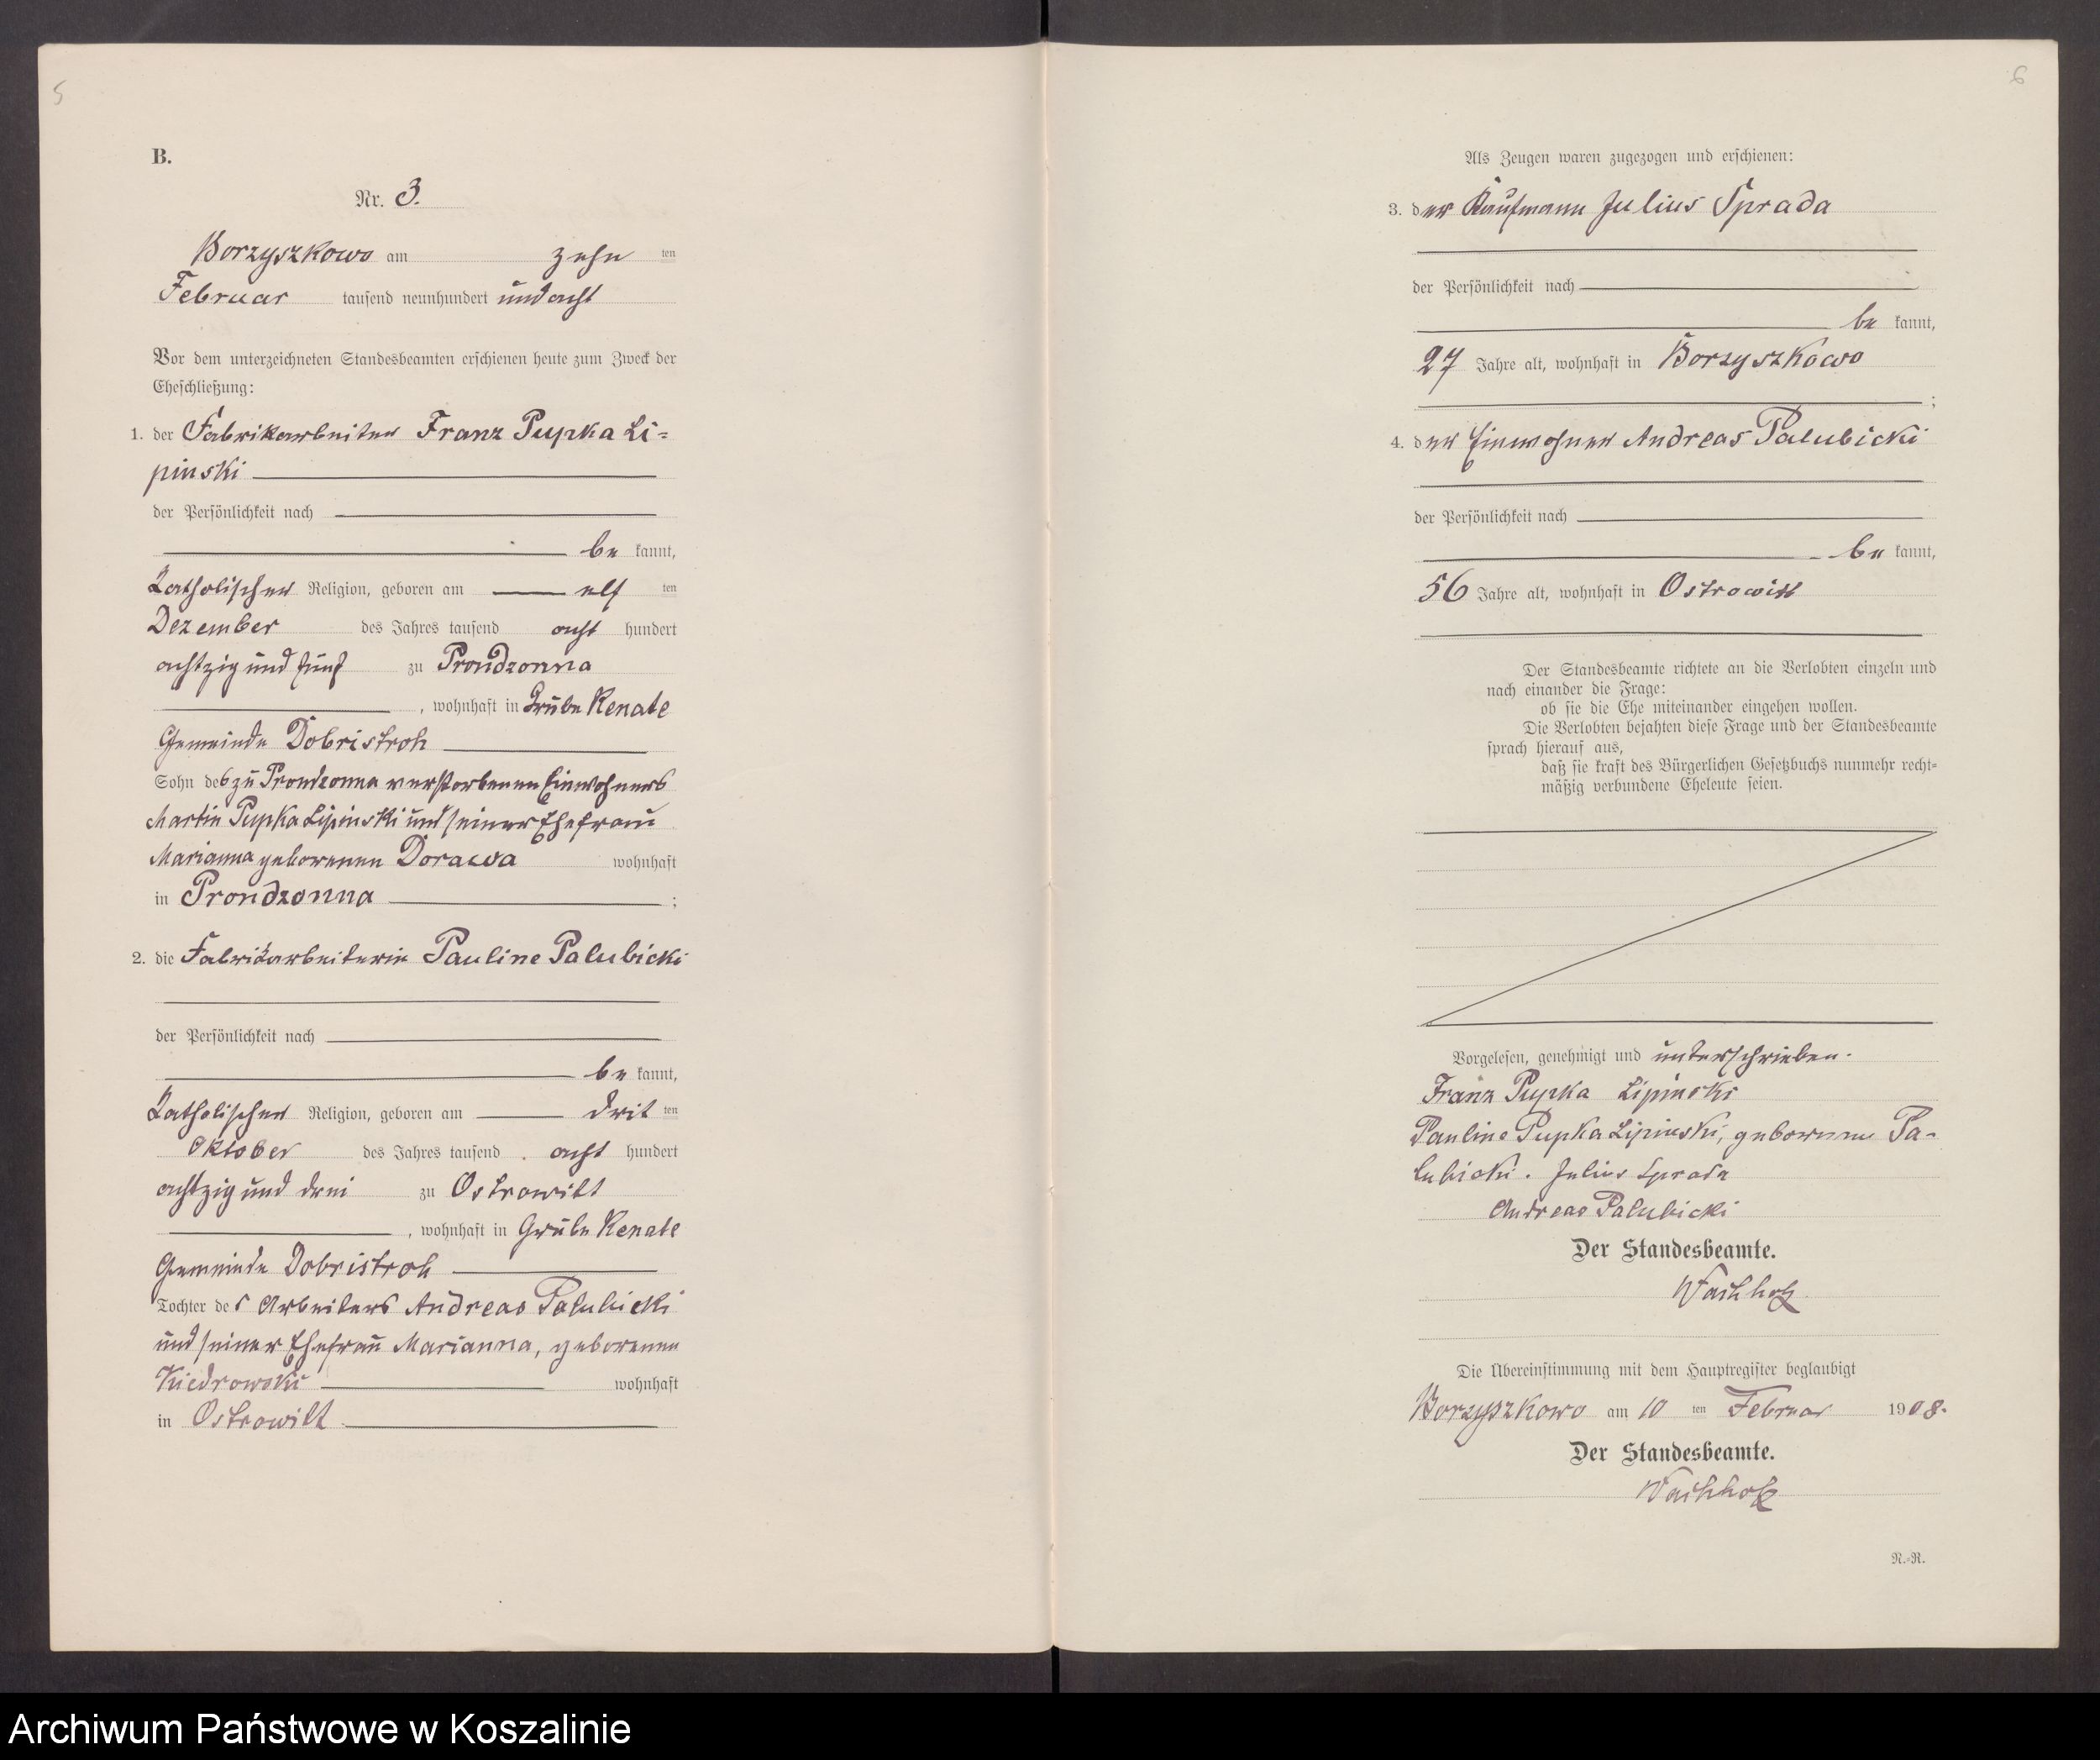 5
B.
Nr. 3.
Borzyszkowo am zehn ten
Februar tausend neunhundert und acht
Vor dem unterzeichneten Standesbeamten erschienen heute zum Zweck der
Eheschließung:
1. der Fabrikarbeiter Franz Pupka Li=
pinski
der Persönlichkeit nach
be kannt,
katholischer Religion, geboren am elf ten
Dezember des Jahres tausend acht hundert
achtzig und fünf zu Prondzonna
, wohnhaft in Grube Renate
Gemeinde Dobristroh
Sohn des zu Prondzonna verstorbenen Einwohners
Martin Pupka Lipinski und seiner Ehefrau
Marianna geborenen Dorawa wohnhaft
in Prondzonna ;
2. die Fabrikarbeiterin Pauline Palubicki
der Persönlichkeit nach
be kannt,
katholischer Religion, geboren am drit ten
Oktober des Jahres tausend acht hundert
achtzig und drei zu Ostrowitt
, wohnhaft in Grube Renate
Gemeinde Dobristroh
Tochter des Arbeiters Andreas Palubicki
und seiner Ehefrau Marianna, geborenen
Kiedrowski wohnhaft
in Ostrowitt
6
Als Zeugen waren zugezogen und erschienen:
3. der Kaufmann Julius Sprada
der Persönlichkeit nach
be kannt,
27 Jahre alt, wohnhaft in Borzyszkowo
;
4. der Einwohner Andreas Palubicki
der Persönlichkeit nach
be kannt,
56 Jahre alt, wohnhaft in Ostrowitt
Der Standesbeamte richtete an die Verlobten einzeln und
nach einander die Frage:
ob sie die Ehe miteinander eingehen wollen.
Die Verlobten bejahten diese Frage und der Standesbeamte
sprach hierauf aus,
daß sie kraft des Bürgerlichen Gesetzbuchs nunmehr recht=
mäßig verbundene Eheleute seien.
Vorgelesen, genehmigt und unterschrieben.
Franz Pupka Lipinski
Pauline Pupka Lipinski, geborene Pa-
lubicki. Julius Sprada
Andreas Palubicki
Der Standesbeamte.
Wachholz
Die Übereinstimmung mit dem Hauptregister beglaubigt
Borzyszkowo am 10 ten Februar 1908.
Der Standesbeamte.
Wachholz
N.=R.
Archiwum Państwowe w Koszalinie